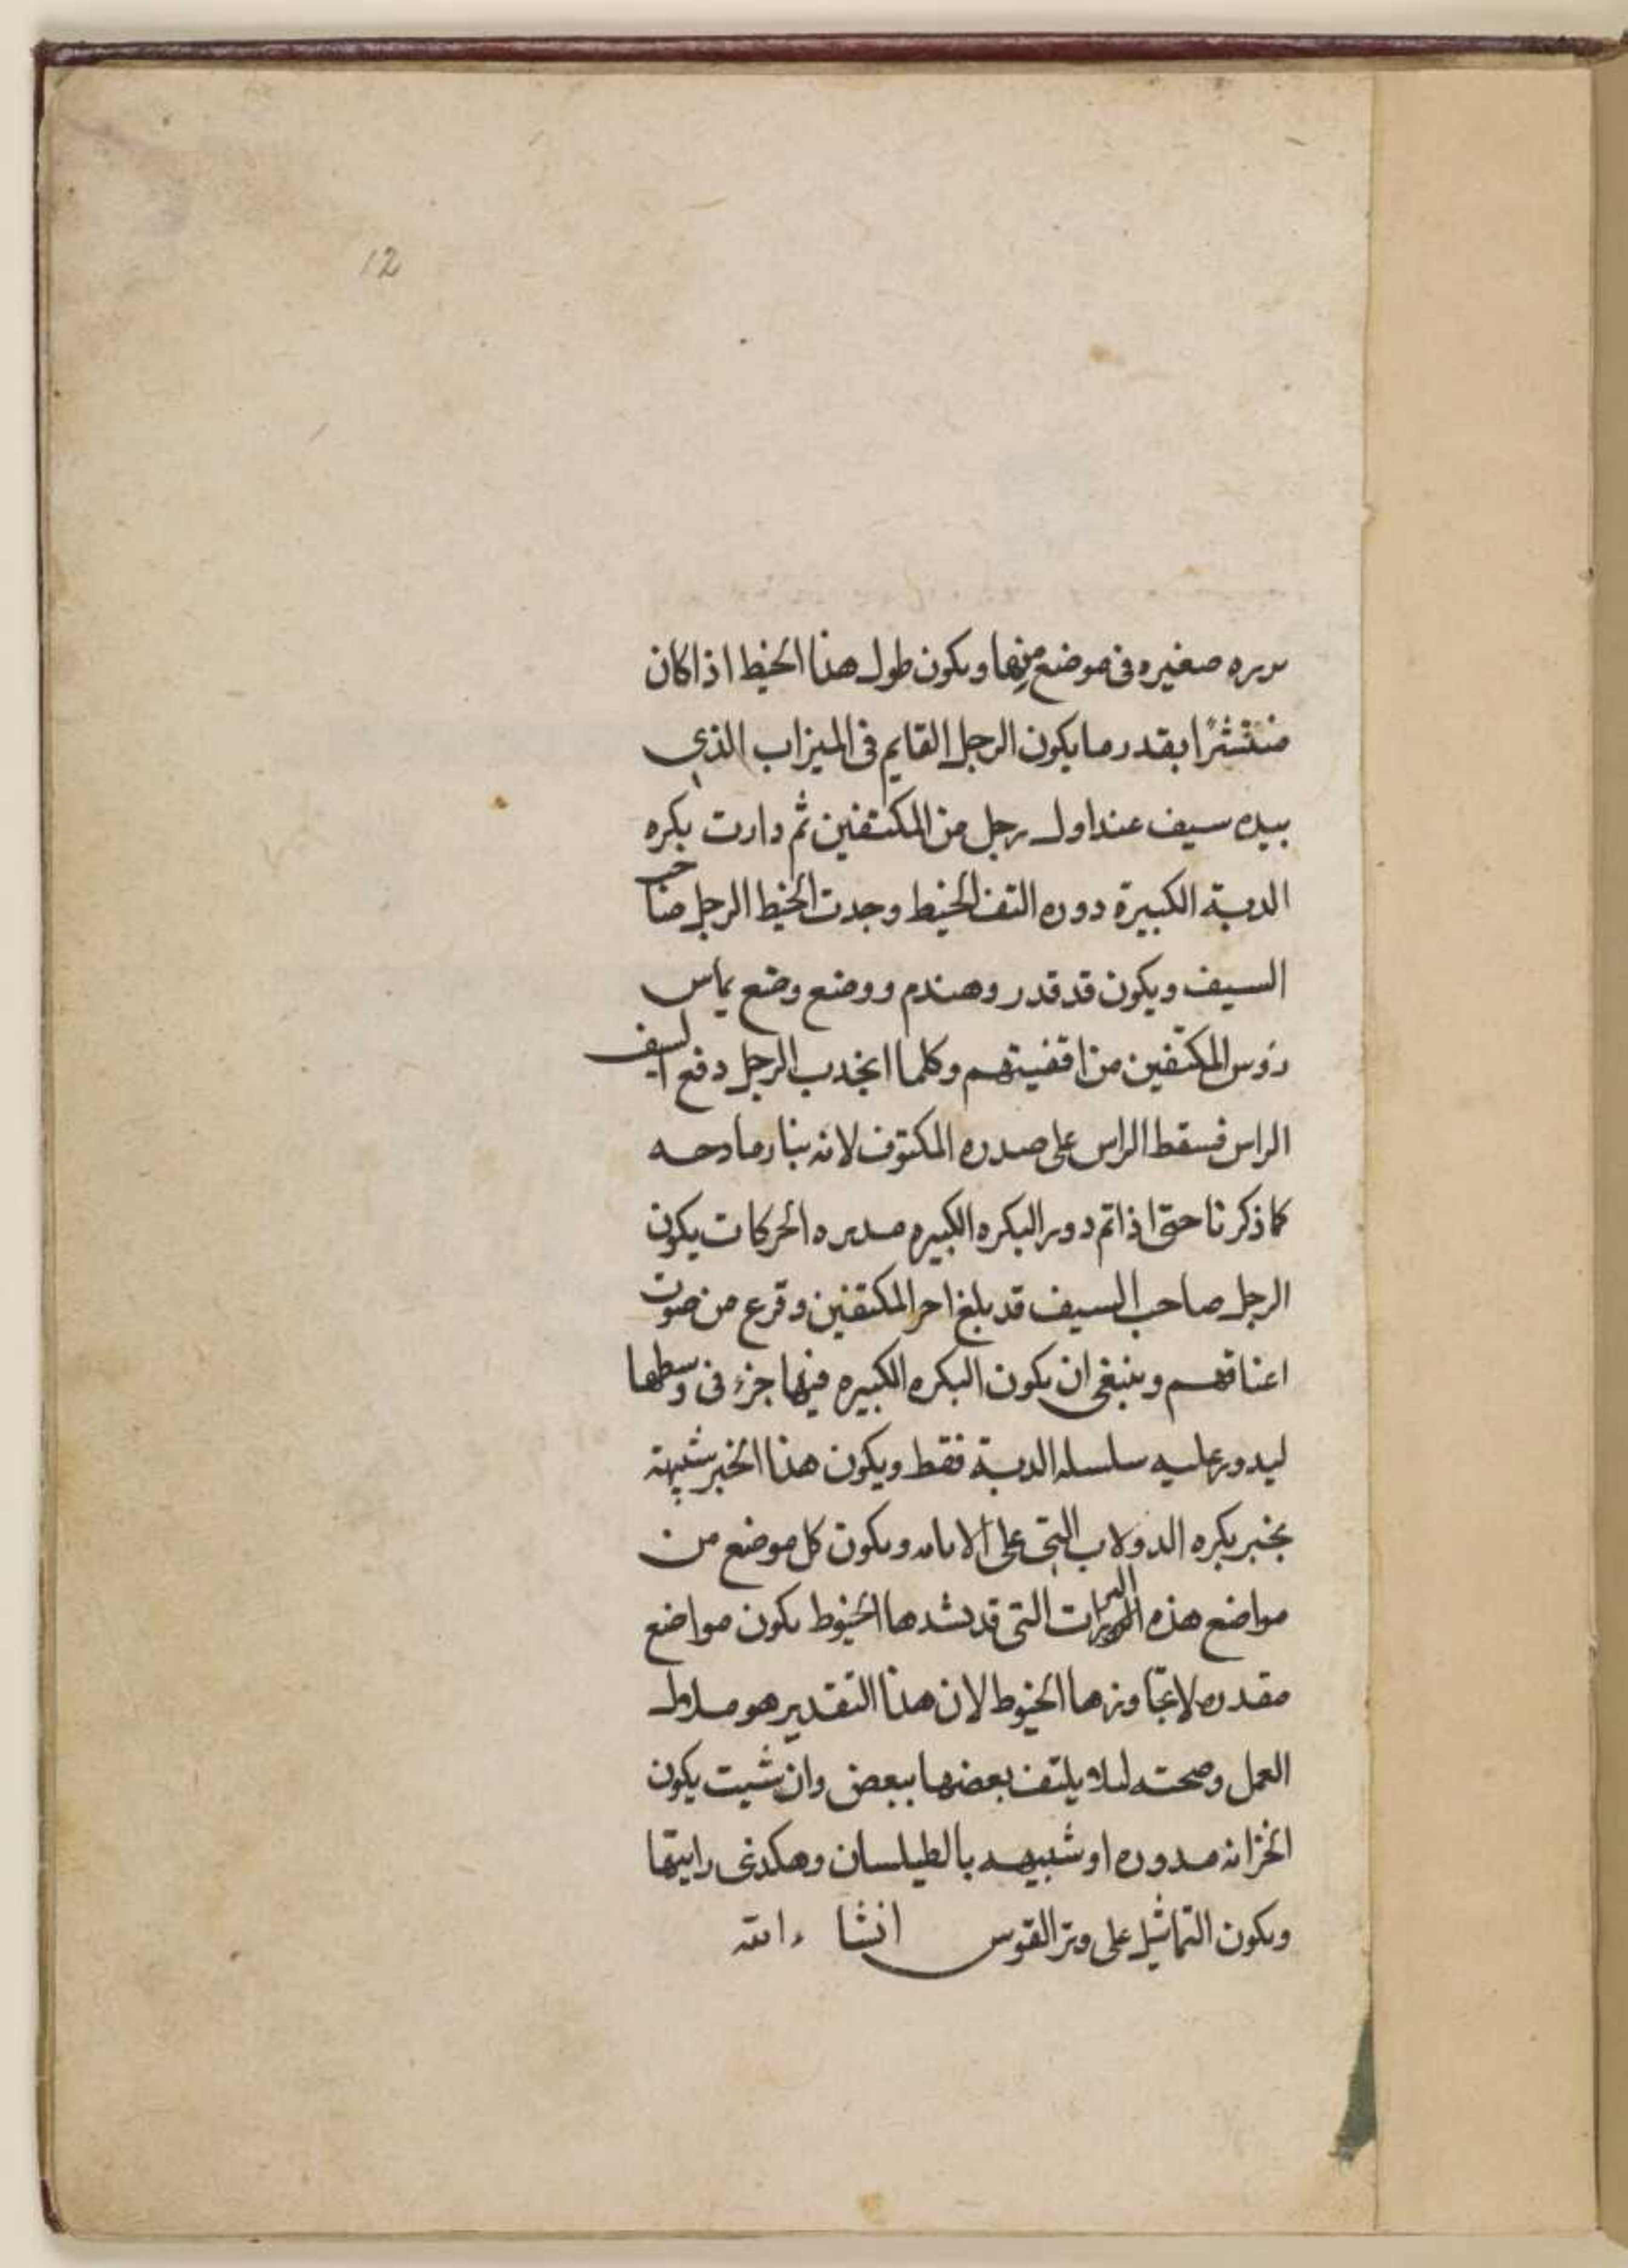 12
صغيره فى موضع منها ويكون طول هذا الخيط اذا كان
منتشرًا بقدر ما يكون الرجل القايم فى الميزاب الذي
بيده سيف عند اول رجل من المكتفين ثم دارت بكره
الدبة الكبيرة دوره التف الخيط وجدت الخيط الرجل صاحب
السيف ويكون قد قدر وهندم ووضع وضع يماس
رؤس المكتفين من اقفيتهم وكلما انجدب الرجل دفع السيف
الراس فسقط الراس على صدره المكتوف لانه
كما ذكرنا حتى اذا تم دور البكره الكبيره مديره الحركات يكون
الرجل صاحب السيف قد بلغ اخر المكتفين وفرع من صوت
اعناقهم وينبغى ان يكون البكره الكبيره فيها جزء فى وسطها
ليدور عليه سلسله الدبة فقط ويكون هذا الخبر شبيهة
بخبر بكره الدولاب التى على ويكون كل موضع من
مواضع هذه التى قد يشدها الخيوط يكون مواضع
مقدره لا تجاوزها الخيوط لان هذا التقدير هو ملاط
العمل وصحته ليلا يلتف بعضها ببعض وان شيت يكون
الخزانه مدوره او شبيهه بالطيلسان وهكدى رايتها
ويكون التماثيل على وتر القوس انشا ء الله